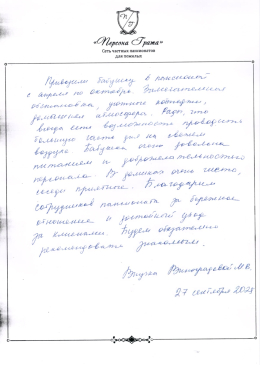 «Персона Гранж»
Сеть частных пансионатов
для пожилых
Привозим бабушку в пансионат
с апреля по октябрь. Замечательная
обстановка, уютные комнаты,
домашняя атмосфера. Рады, что
всегда есть возможность проводить
большую часть дня на свежем
воздухе. Бабушка очень довольна
питанием и доброжелательностью
персонала. В домиках очень чисто,
люди приятные. Благодарим
сотрудников пансионата за бережное
отношение и достойный уход
за близкими. Будем обязательно
рекомендовать знакомым.
Внучка Виноградовой М.В.
27 сентября